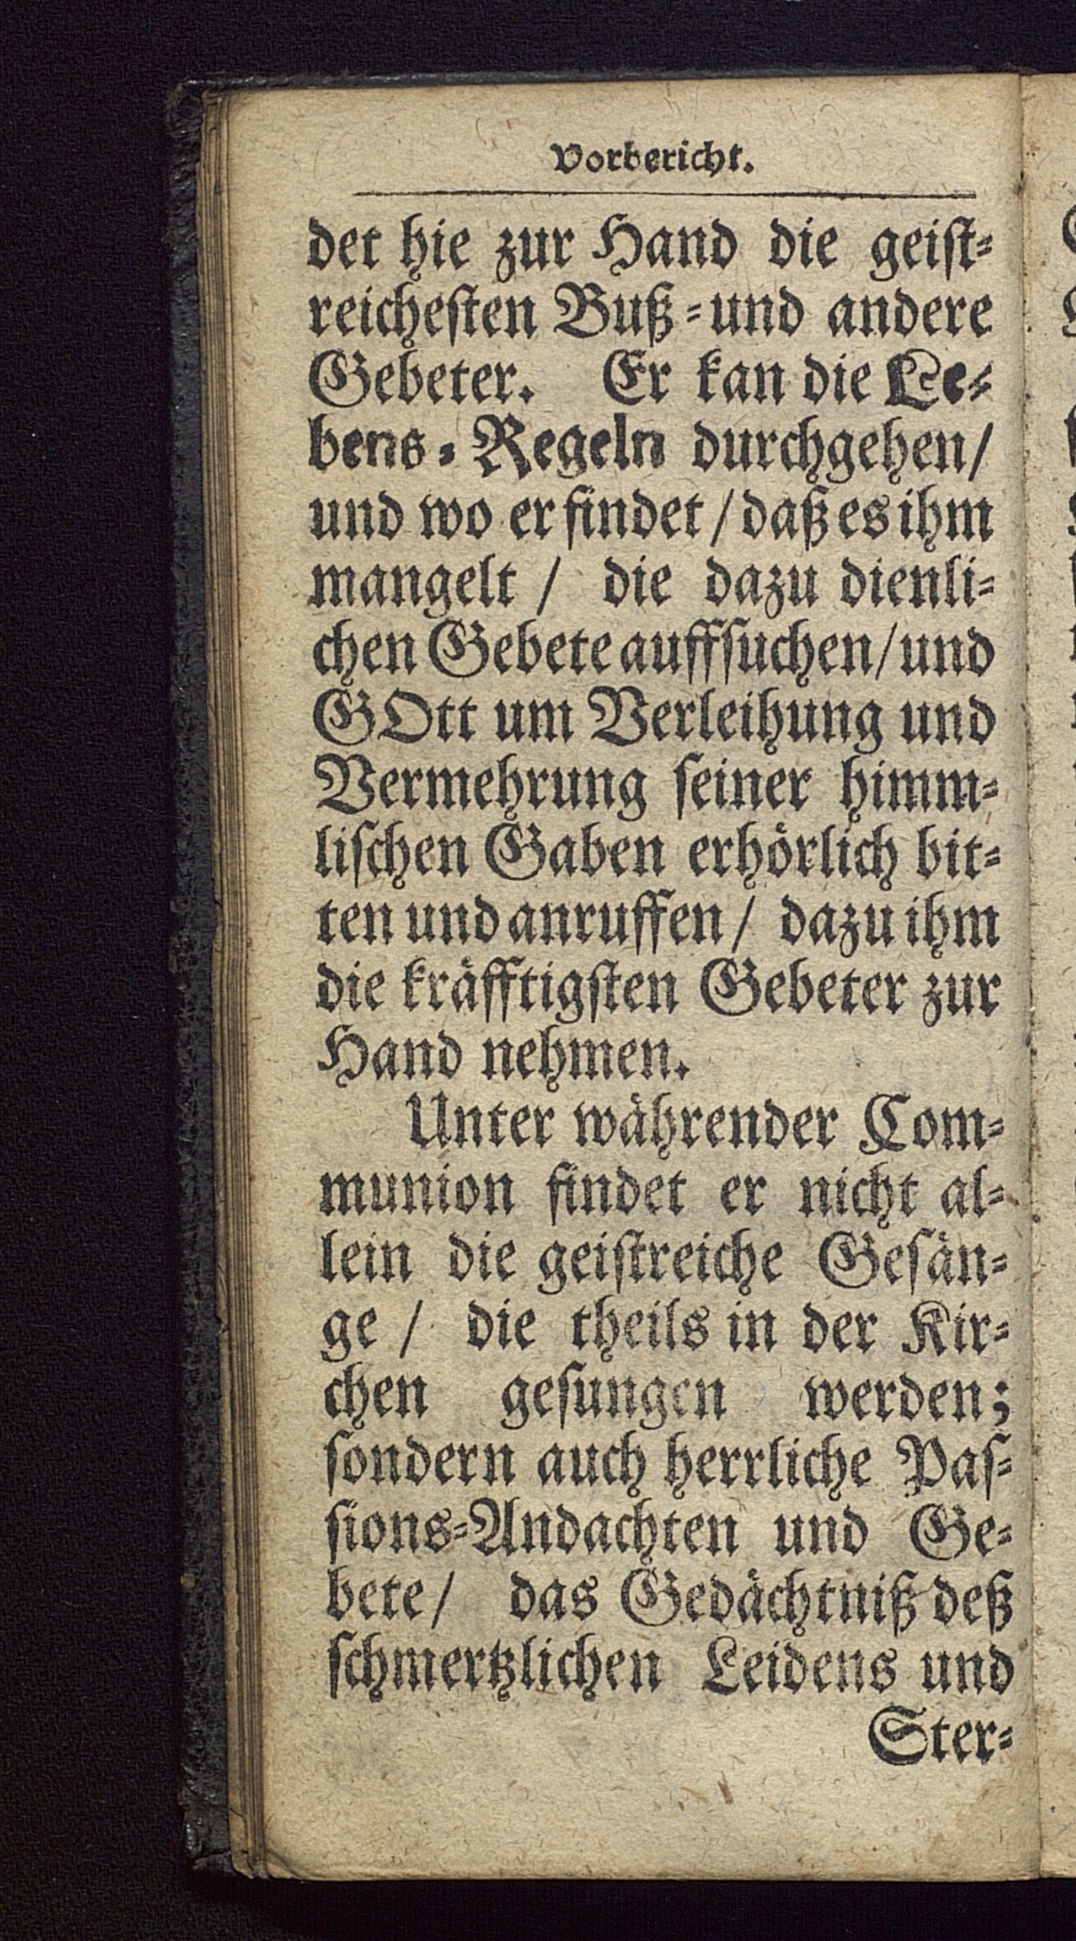 Vorbericht.
det hie zur Hand die geiſt⸗
reicheſten Buß⸗und andere
Gebeter. Er kan die Le⸗
bens⸗Regeln durchgehen/
und wo er findet/daß es ihm
mangelt/ die dazu dienli⸗
chen Gebete auffſuchen/und
GOtt um Verleihung und
Vermehrung ſeiner himm⸗
liſchen Gaben erhörlich bit⸗
ten und anruffen/ dazu ihm
die kräfftigſten Gebeter zur
Hand nehmen.
Unter währender Com⸗
munion findet er nicht al⸗
lein die geiſtreiche Geſän⸗
ge/ die theils in der Kir⸗
chen geſungen werden;
ſondern auch herrliche Paſ⸗
ſions⸗Andachten und Ge⸗
bete/ das Gedächtniß deß
ſchmertzlichen Leidens und
Ster⸗